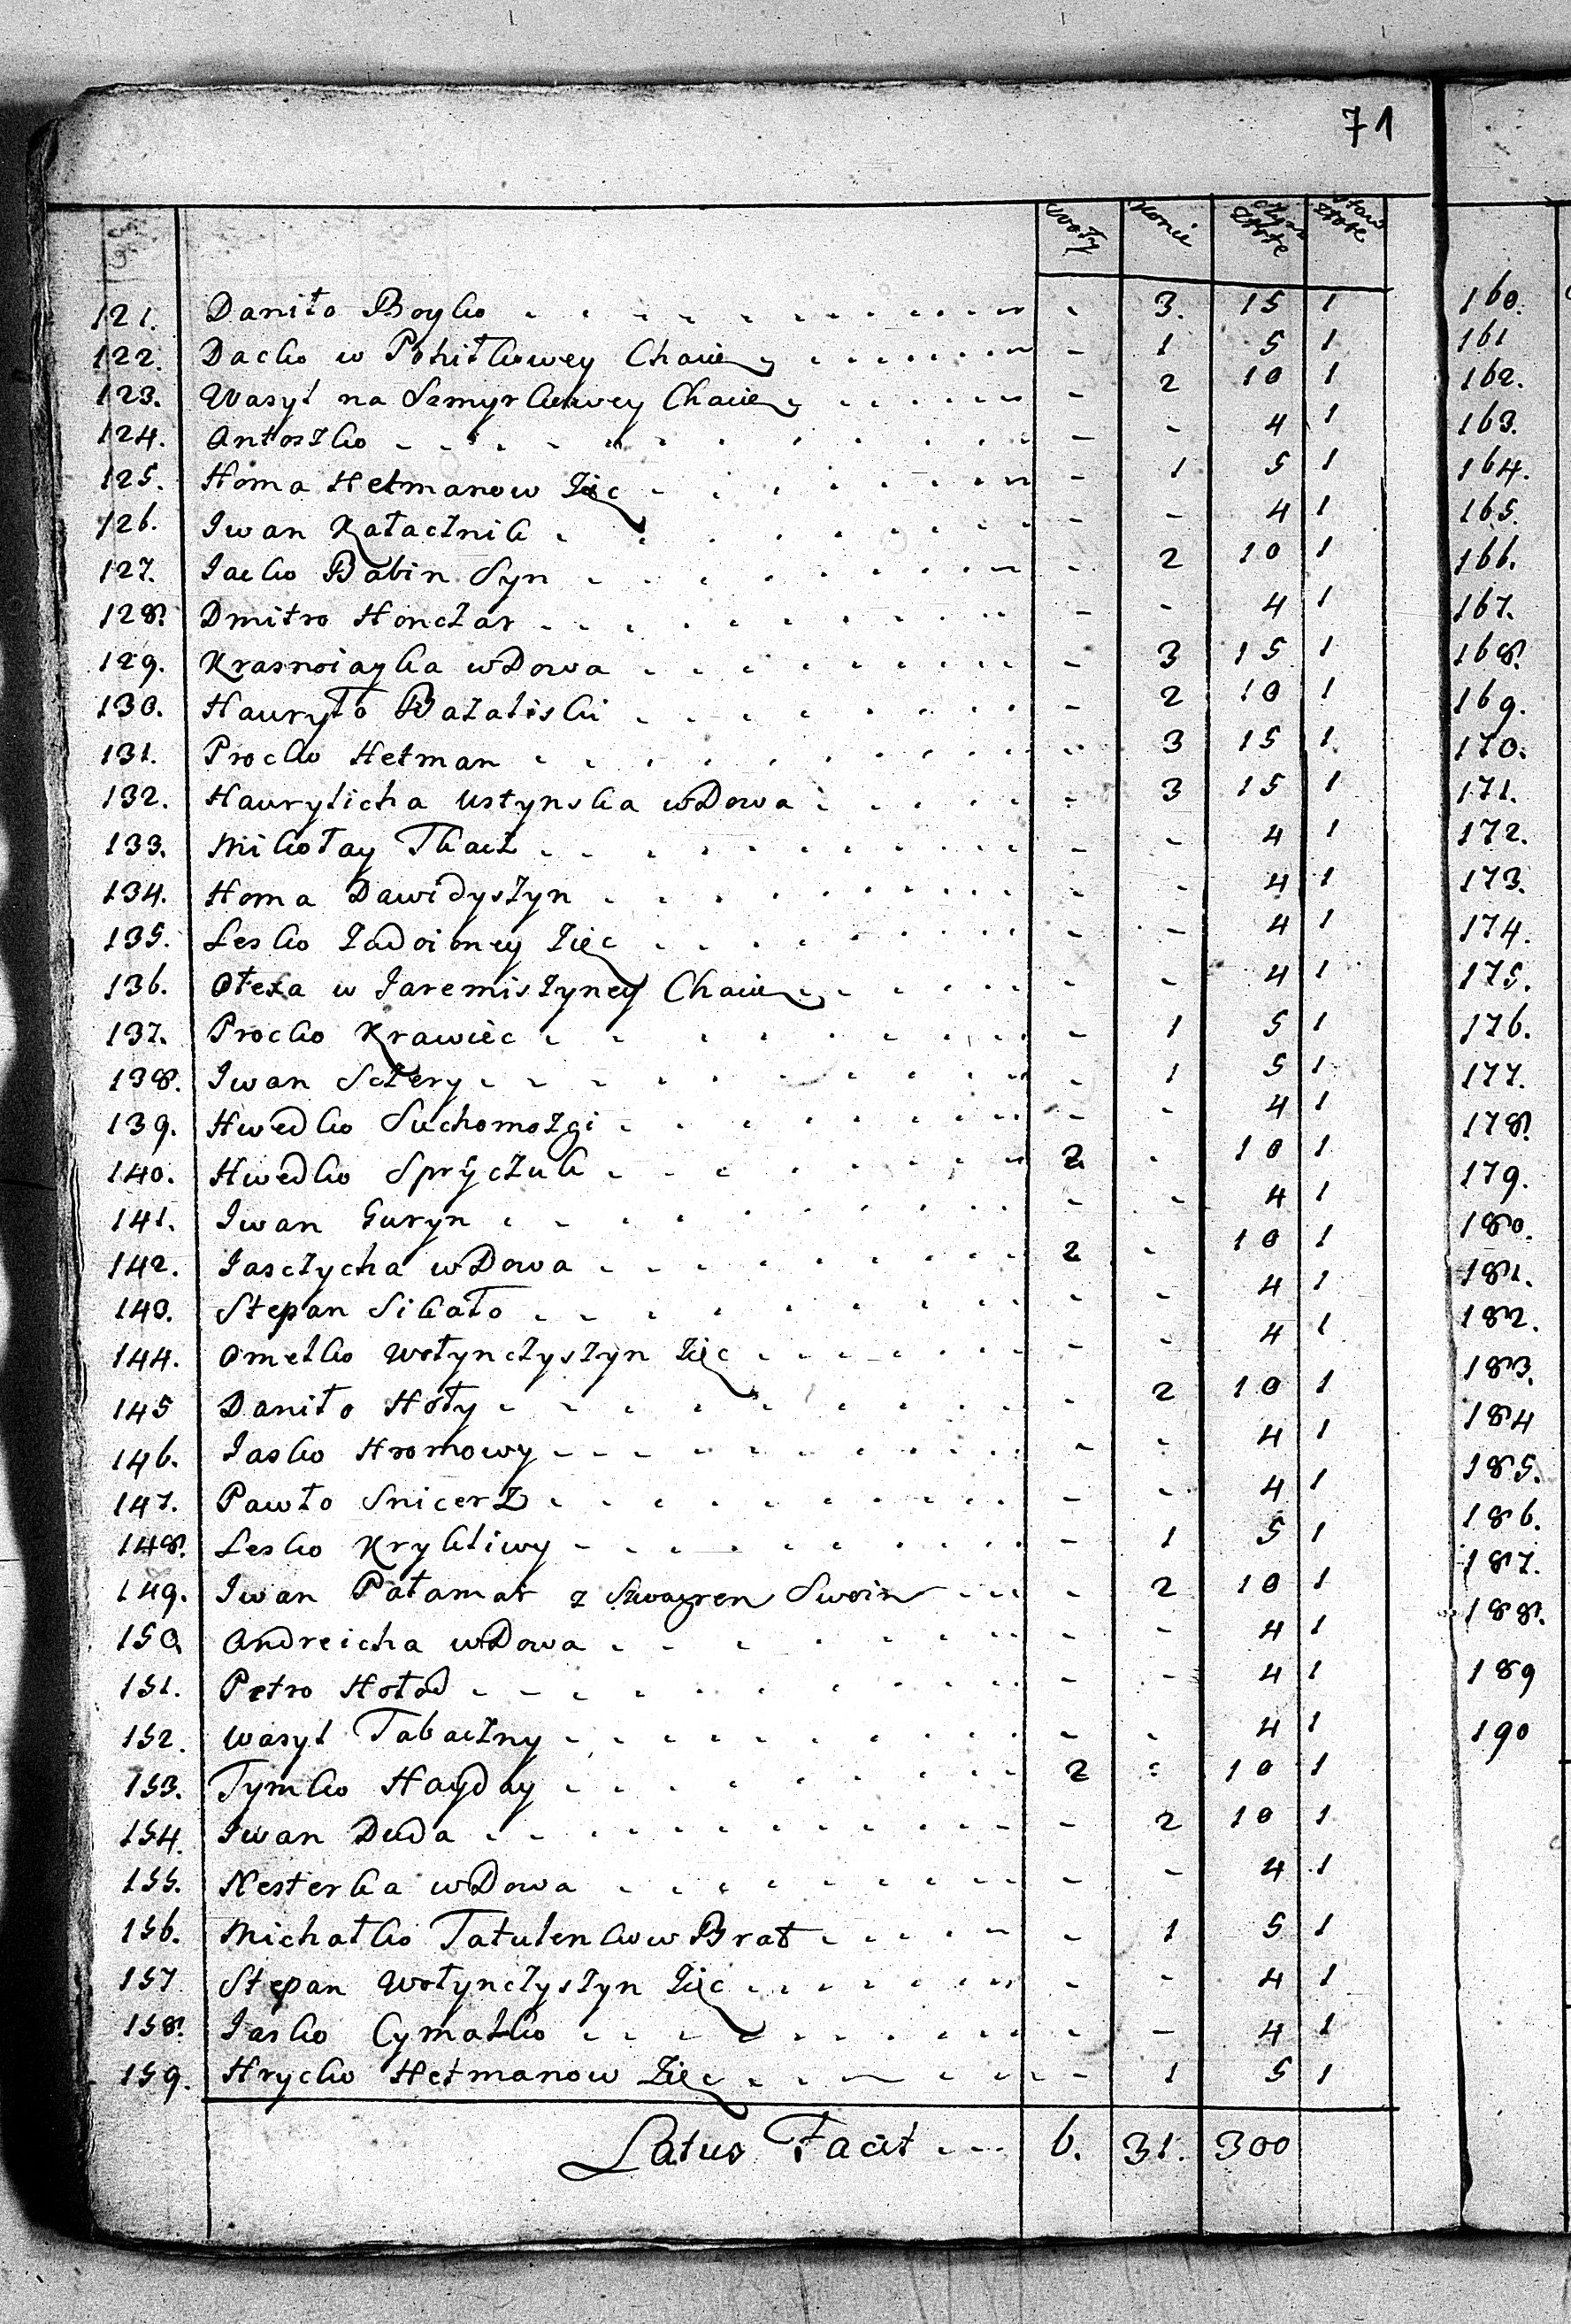 71
Woły Konie Czyn. Złote Staw Złote
121. Daniło Boyko - 3. 15 1
122. Dacko w Pohitkowey Chacie - 1 5 1
123. Wasyl na Semyrkowey Chacie - 2 10 1
124. Antoszko - - 4 1
125. Homa Hetmanow Zięc - 1 5 1
126. Iwan Kałacznik - - 4 1
127. Jacko Babin Syn - 2 10 1
128. Dmitro Honczar - - 4 1
129. Krasnoiayka wDowa - 3 15 1
130. Hauryło Bazaliski - 2 10 1
131. Procko Hetman - 3 15 1
132. Haurylicha Ustynska wDowa - 3 15 1
133. Mikołay Tkacz - - 4 1
134. Homa Dawidyszyn - - 4 1
135. Lesko Zadoiney Zięc - - 4 1
136. Ołexa w Jaremiszyney Chacie - - 4 1
137. Procko Krawiec - 1 5 1
138. Iwan Sczery - 1 5 1
139. Hwedko Suchomozgi - - 4 1
140. Hwedko Spryczuk 2 - 10 1
141. Iwan Guryn - - 4 1
142. Jasczycha wDowa 2 - 10 1
143. Stepan Sikało - - 4 1
144. Omelko Wołynczyszyn Zięc - - 4 1
145 Daniło Hoły - 2 10 1
146. Jasko Hromowy - - 4 1
147. Pawło Snicerz - - 4 1
148. Lesko Krykliwy - 1 5 1
149. Iwan Pałamar z Szwagren Swoin - 2 10 1
150. Andreicha wDowa - - 4 1
151. Petro Hołod - - 4 1
152. Wasyl Tabaczny - - 4 1
153. Tymko Hayday 2 - 10 1
154. Iwan Duda - 2 10 1
155. Nesterka wDowa - - 4 1
156. Michałko Tatulenkow Brat - 1 5 1
157 Stepan Wołynczyszyn Zięc - - 4 1
158. Jasko Cymalko - - 4 1
159. Hrycko Hetmanow Zięc - 1 5 1
Latus Facit 6. 31. 300
160.
161
162.
163.
164.
165.
166.
167.
168.
169.
170.
171.
172.
173.
174.
175.
176.
177.
178.
179.
180.
181.
182.
183.
184
185.
186.
187.
188.
189
190